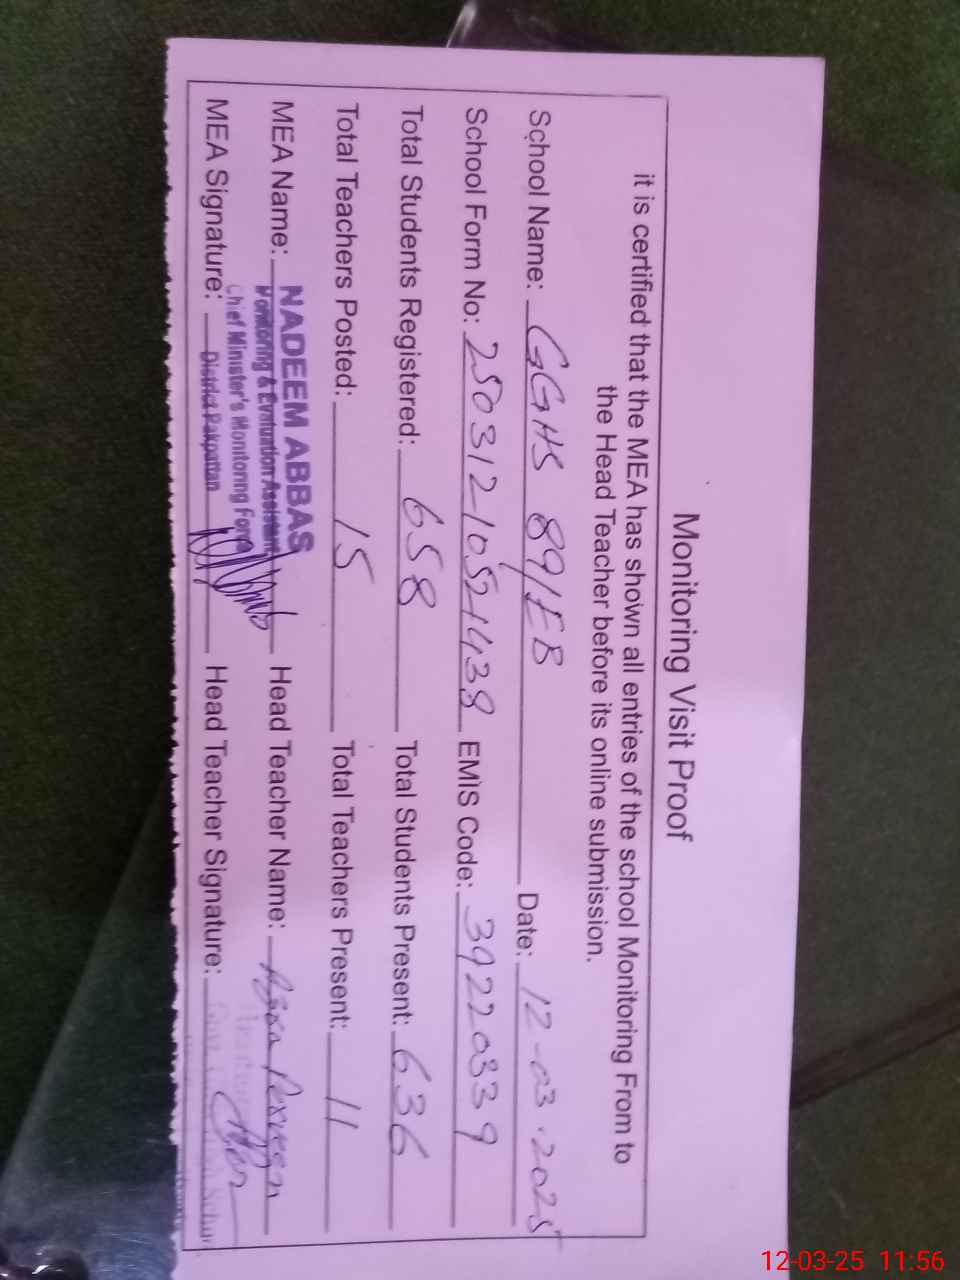 Monitoring Visit Proof
it is certified that the MEA has shown all entries of the school Monitoring From to
the Head Teacher before its online submission.
School Name: GGHS 89/EB Date: 12-03-2025
School Form No: 250312-10521438 EMIS Code: 39220339
Total Students Registered: 658 Total Students Present: 636
Total Teachers Posted: 15 Total Teachers Present: 11
MEA Name: NADEEM ABBAS Head Teacher Name: Perveen
Monitoring & Evaluation Assistant
Chief Minister's Monitoring Force
MEA Signature: District Pakpattan Head Teacher Signature:
12-03-25 11:56